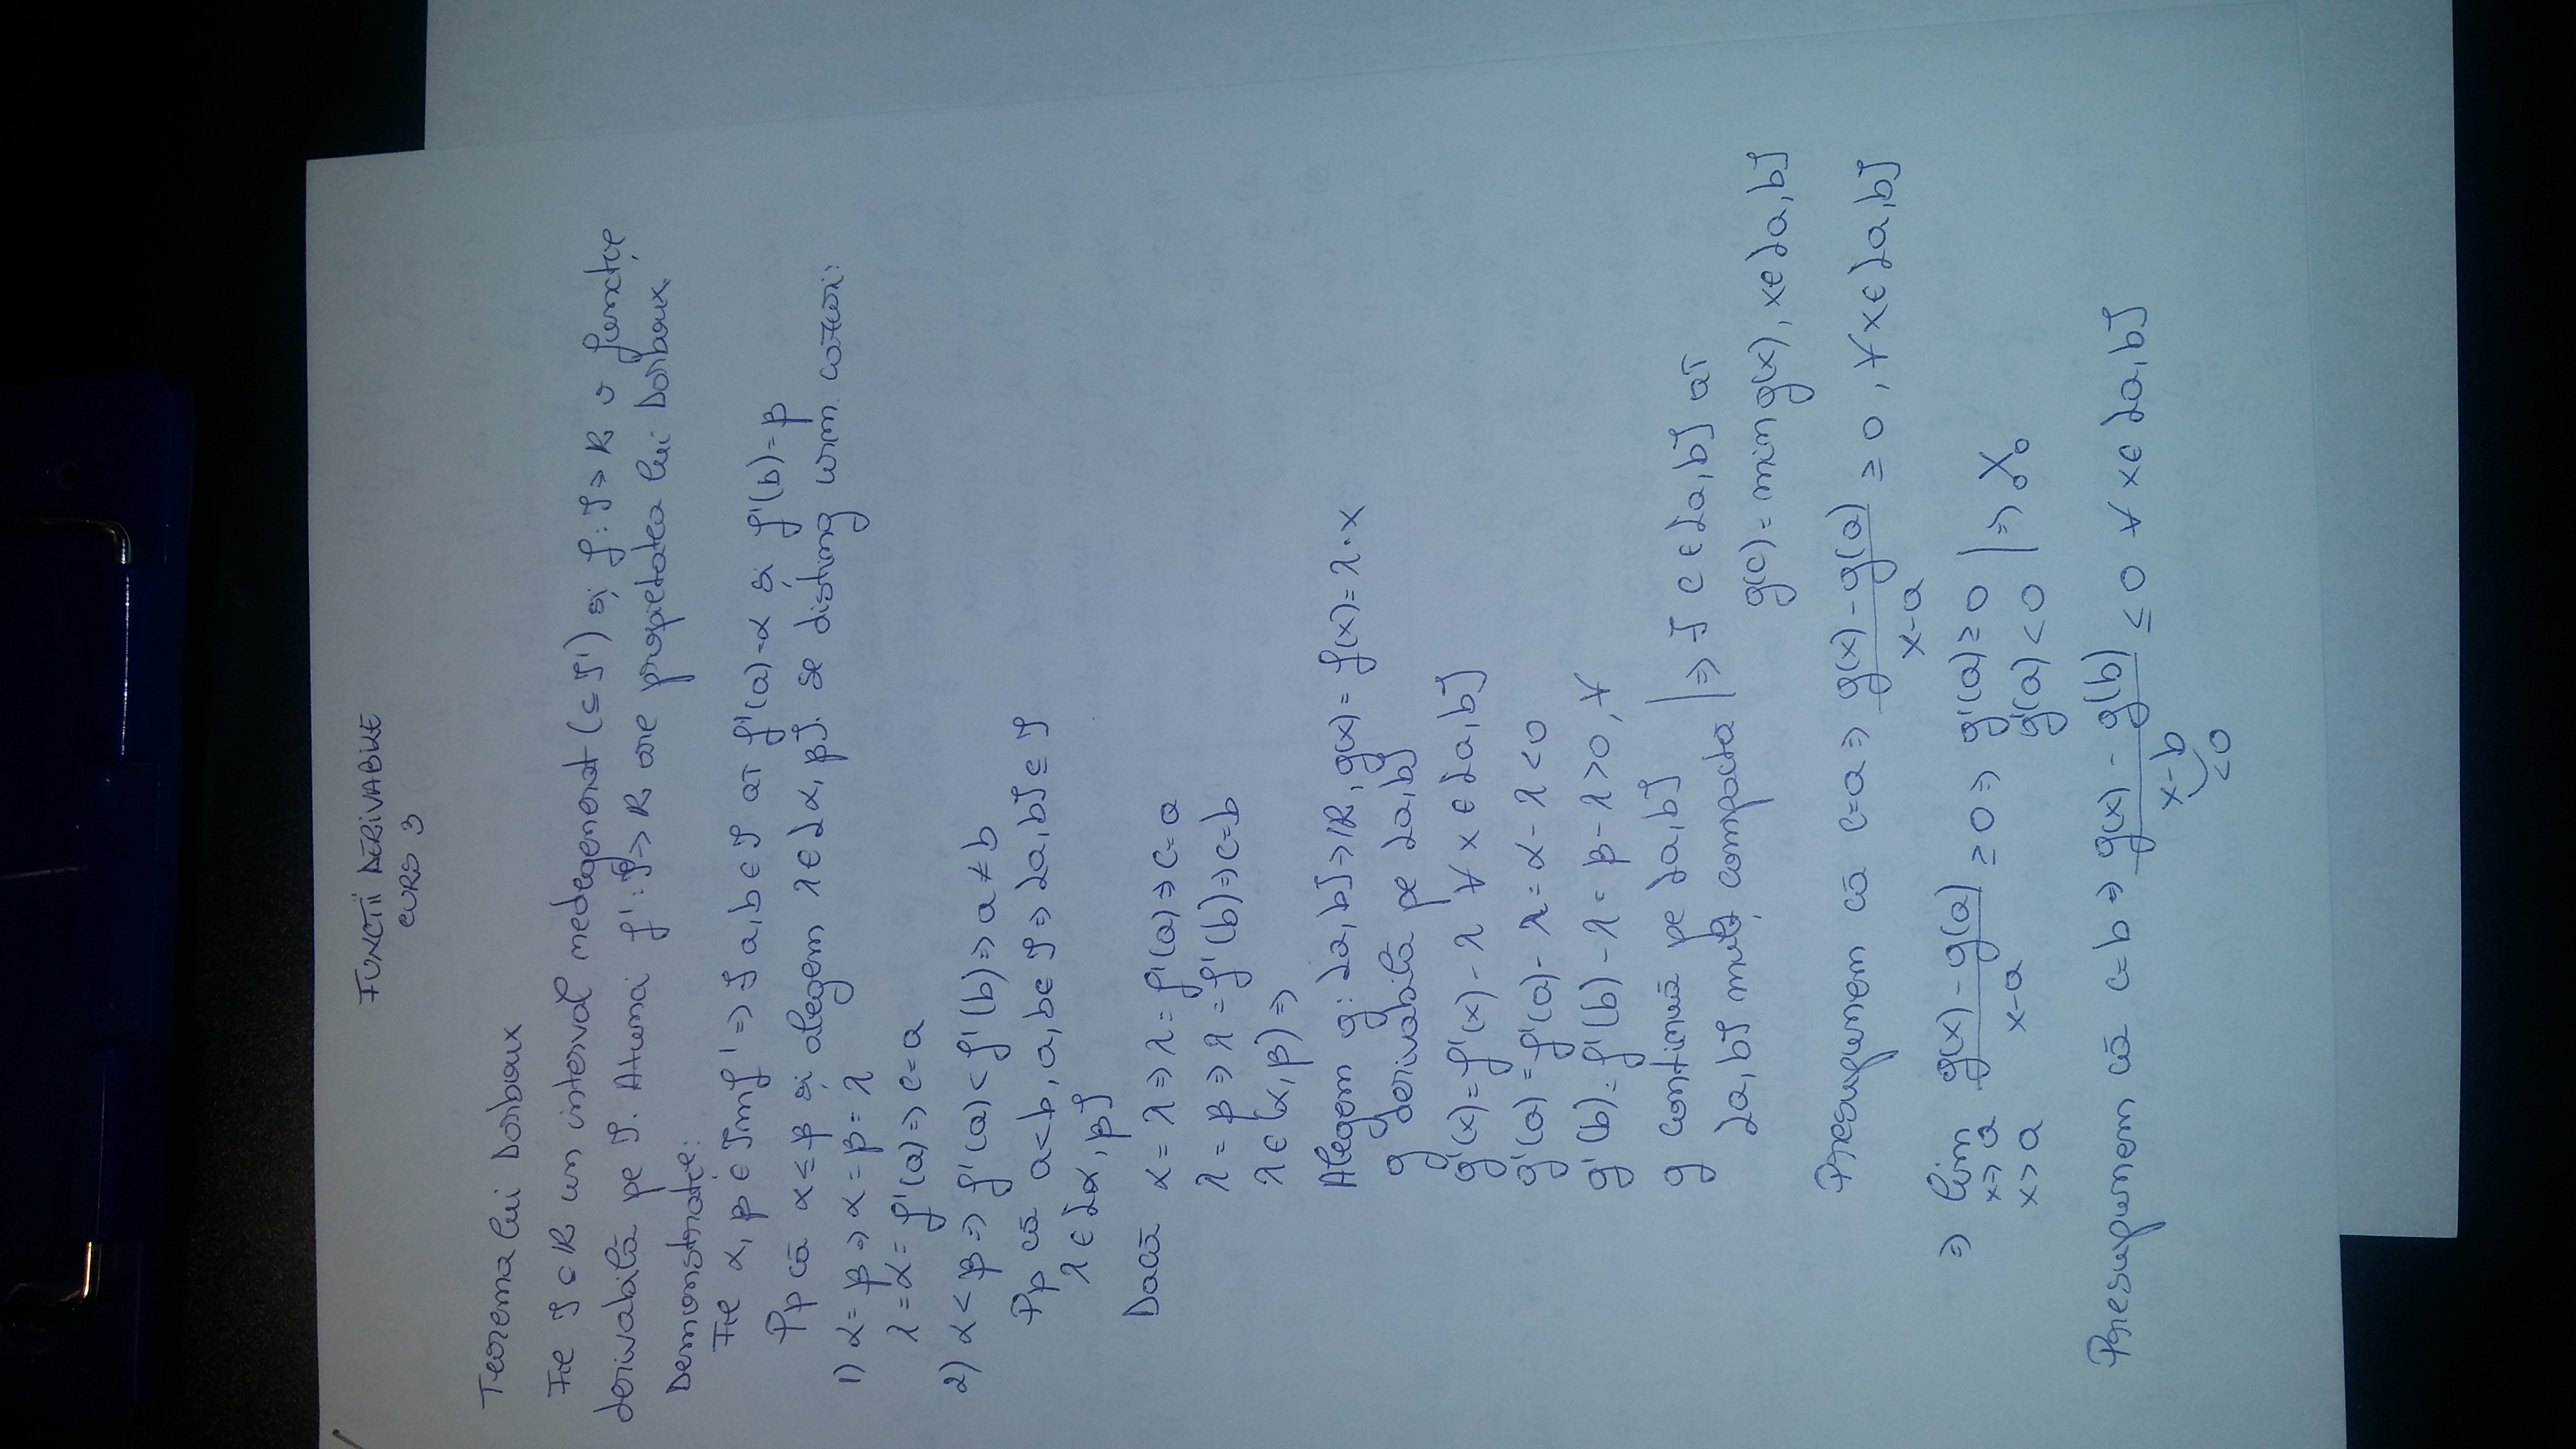 FUNCȚII DERIVABILE
CURS 3
Teorema lui Darboux
Fie I ⊂ R un interval nedegenerat (⊂ I') și f: I → R o funcție
derivabilă pe I. Atunci f': I → R are propietatea lui Darboux.
Demonstrație:
Fie α, β ∈ Im f' ⇒ ∃ a, b ∈ I aî f'(a) = α și f'(b) = β
Pp că α ≤ β și alegem λ ∈ [α, β]. Se disting urm. cazuri:
1) α = β ⇒ α = β = λ
λ = α = f'(a) ⇒ c = a
2) α < β ⇒ f'(a) < f'(b) ⇒ a ≠ b
Pp că a < b, a, b ∈ I ⇒ [a, b] ⊆ I
λ ∈ [α, β]
Dacă α = λ ⇒ λ = f'(a) ⇒ c = a
λ = β ⇒ λ = f'(b) ⇒ c = b
λ ∈ (α, β) ⇒
Alegem g: [a, b] → R, g(x) = f(x) = λ · x
g derivabilă pe [a, b]
g'(x) = f'(x) - λ ∀ x ∈ [a, b]
g'(a) = f'(a) - λ = α - λ < 0
g'(b) = f'(b) - λ = β - λ > 0, ∀
g continuă pe [a, b] | ⇒ ∃ c ∈ [a, b] aî
[a, b] mulț compactă g(c) = min g(x), x ∈ [a, b]
Presupunem că c = a ⇒ g(x) - g(a) / x - a ≥ 0, ∀ x ∈ [a, b]
⇒ lim x→a x>a g(x) - g(a) / x - a ≥ 0 ⇒ g'(a) ≥ 0
g'(a) < 0 | ⇒
Presupunem că c = b ⇒ g(x) - g(b) / x - b ≤ 0 ∀ x ∈ [a, b]
< 0